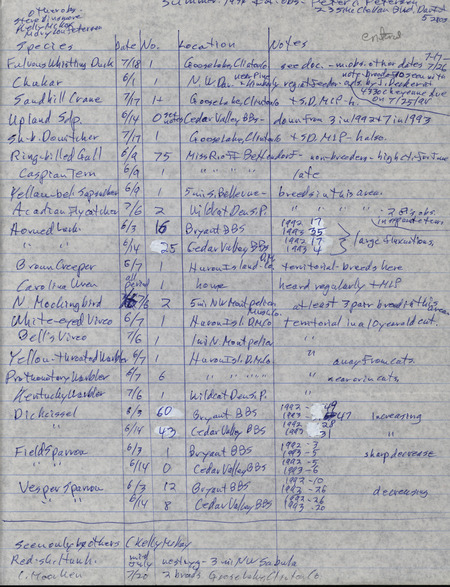 Summer 1994 Peter C. Petersen
other obs. 235 McClellan Blvd. Davenport
Steve Dinsmore
Kelly McKay
Mary Lou Petersen
entered
Species Date No. Location Notes
Fulvous Whistling Duck 7/18 1 Goose Lake, Clinton Co. see doc. - m. obs. other dates 7/17-7/26
Chukar 6/1 1 N.W. Dav. near Pine
Sandhill Crane 7/17 1+ Goose Lake, Clinton Co. + S.D. MLP - h. on 7/25/94
Upland Sdp. 6/14 0 Cedar Valley BBS - down from 3 in 1992 + 7 in 1993
Sh-b. Dowitcher 7/17 1 Goose Lake, Clinton Co. + S.D. MLP - h also.
Ring-billed Gull 6/9 75 Miss R. off Bettendorf - non-breeders - high ct. for time
Caspian Tern 6/9 1 " " " " late
Yellow-bel. Sapsucker 6/9 1 5 mi S. Bellevue - breeds in this area.
Acadian Flycatcher 7/6 2 Wildcat Den S.P. " " " "
Horned Lark 6/3 16 Bryant BBS 1992 17 1993 35
" " 6/14 25 Cedar Valley BBS 1992 17 1993 4 large fluctuations.
Brown Creeper 6/7 1 Huron Island territorial - breeds here
Carolina Wren all period 1 home heard regularly + MLP
N. Mockingbird 7/6 2 5 mi N.W. Montpelier at least 3 pair breed in this area
White-eyed Vireo 6/7 1 Huron Isl. D.M. Co territorial in a 10 year old cut.
Bell's Vireo 7/6 1 1 mi N. Montpelier "
Yellow-throated Warbler 6/7 1 Huron Isl. D.M. Co " away from cuts.
Prothonotary Warbler 6/7 6 " " " " " near or in cuts.
Kentucky Warbler 7/6 1 Wildcat Den S.P. "
Dickcissel 6/3 60 Bryant BBS 1992 - 49 1993 - 47 increasing
6/14 43 Cedar Valley BBS 1992 - 28 1993 - 31 "
Field Sparrow 6/3 1 Bryant BBS 1992 - 3 1993 - 5 sharp decrease
" " 6/14 0 Cedar Valley BBS 1992 - 5 1993 - 6
Vesper Sparrow 6/3 12 Bryant BBS 1992 - 10 1993 - 26 decreasing
" " 6/14 8 Cedar Valley BBS 1992 - 26 1993 - 20
Seen only by others (Kelly McKay
Red-sh. Hawk mid July nest yg - 3 mi NW Sabula
C. Moorhen 7/20 2 broods Goose Lake, Clinton Co